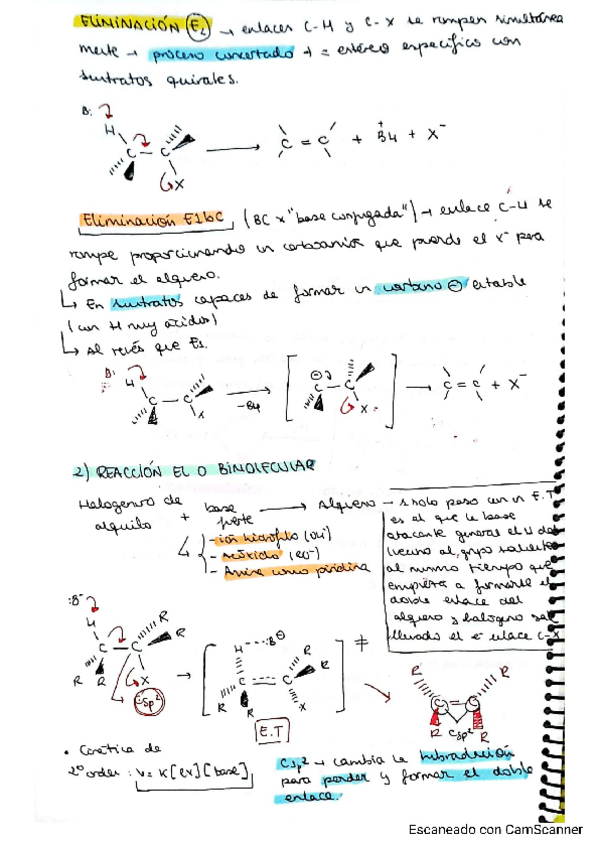 ELIMINACIÓN (E2) → enlaces C-H y C-X se rompen simultánea
mente → proceso concertado + = estéreo específico con
sustratos quirales.
B: H
C - C → C = C + BH + X⁻
X
Eliminación E1bC, (BC x "base conjugada") → enlace C-H se
rompe proporcionando un carboanión que pierde el X⁻ para
formar el alqueno.
↳ En sustratos capaces de formar un carbono ⊖ estable
(con H muy ácidos)
↳ Al revés que E1.
B: H
C - C → -BH [ ⊖ C - C X ] → C = C + X⁻
X
2) REACCIÓN E2 O BIMOLECULAR
Halogenuro de alquilo + base fuerte → Alqueno → 1 solo paso con un E.T
es el que la base
atacante general el H del
vecino al grupo saliente
al mismo tiempo que
empieza a formarse el
doble enlace del
alqueno y halógeno sale
llevado el e⁻ enlace C-X
- ión hidróxilo (OH⁻)
- Alcóxido (RO⁻)
- Amina como piridina
:B⁻
H R
C - C R
R R X
Csp²
H----B⊖ R
C = C R
R R X
≠
E.T
R R
C C
R Csp² R
• Cinética de
2º orden: V = K[RX][base]
Csp² → cambia la hibridación
para perder y formar el doble
enlace.
Escaneado con CamScanner